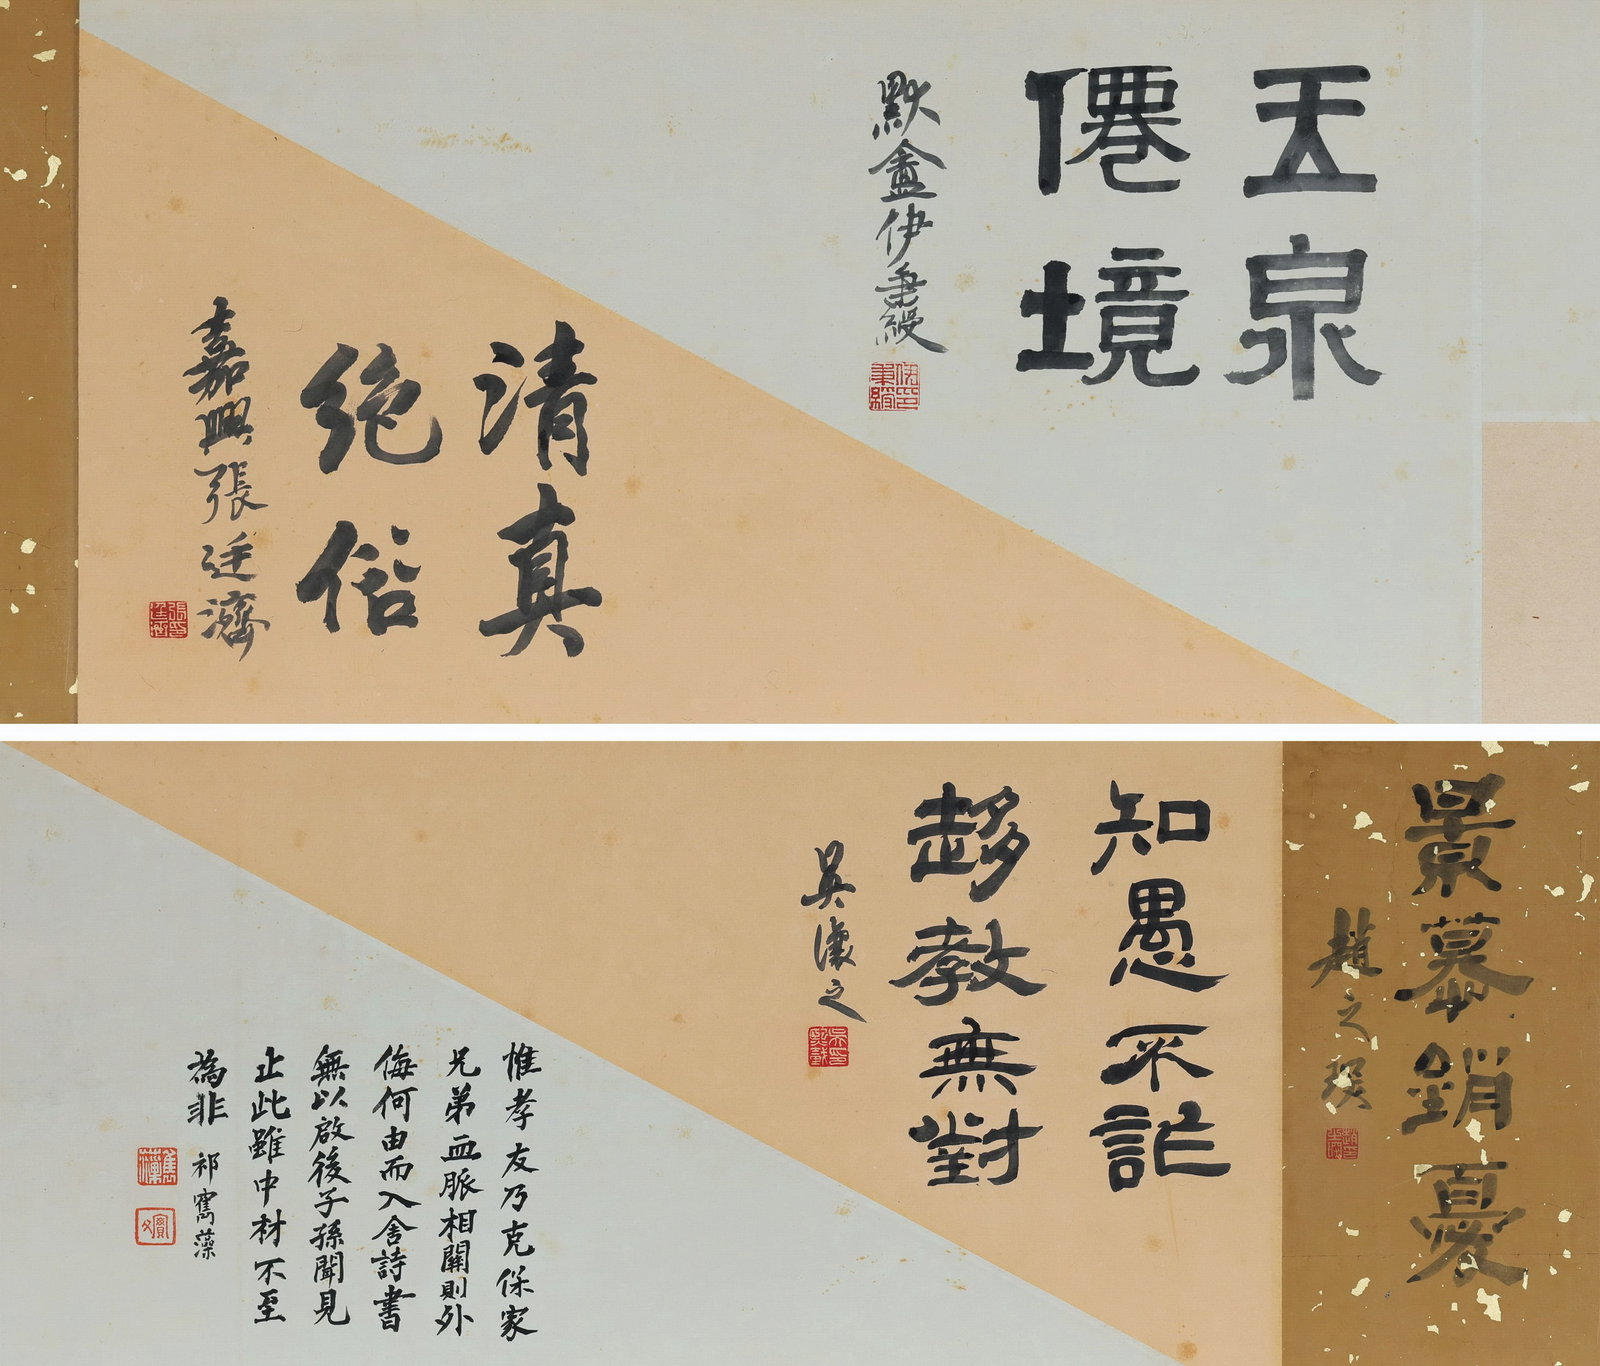 玉泉
僊境
默盦伊秉綬
清真
絶俗
嘉興張廷濟
景慕銷憂
趙之琛
知愚不詑
趍教無對
吴讓之
惟孝友乃克保家
兄弟血脈相關則外
侮何由而入舍詩書
無以啟後子孫聞見
止此雖中材不至
為非 祁寯藻